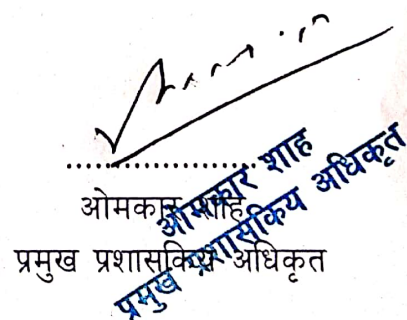 ओमकार शाह
प्रमुख प्रशासकिय अधिकृत
ओमकार शाह
प्रमुख प्रशासकिय अधिकृत